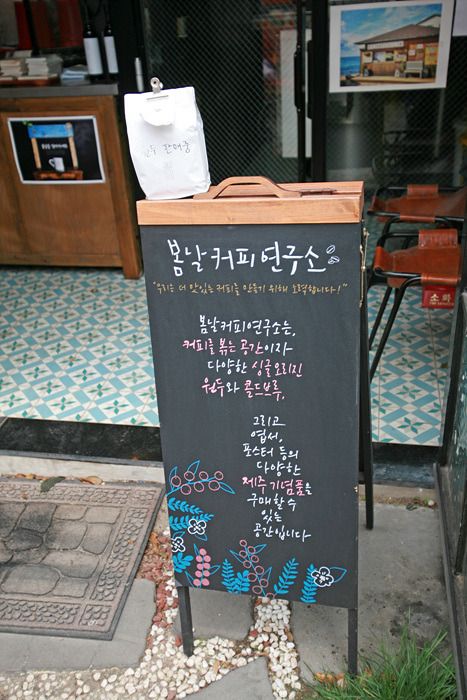 원두 판매중
봄날커피연구소
"우리는 더 맛있는 커피를 만들기 위해 노력합니다!"
봄날커피연구소는,
커피를 볶는 공간이자
다양한 싱글오리진
원두와 콜드브루,
그리고
엽서,
포스터 등의
다양한
제주 기념품을
구매할 수
있는
공간입니다
소화